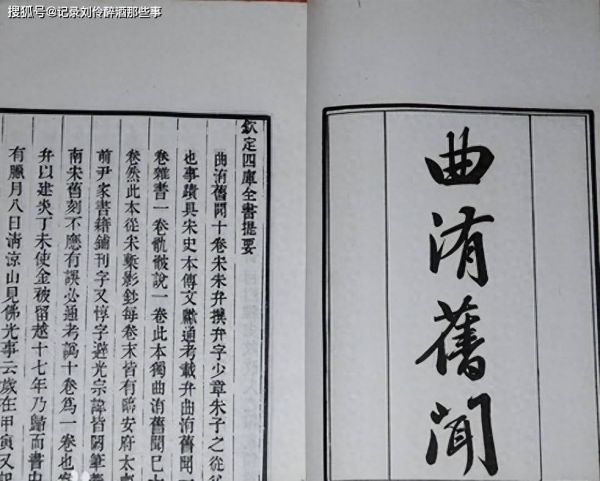 搜狐号@记录刘伶醉酒那些事
曲洧舊聞
欽定四庫全書提要
曲洧舊聞十卷宋朱弁撰弁字少章朱子之從
也事蹟具宋史本傳文獻通考載弁曲洧舊聞一
卷雜書一卷骫骳說一卷此本獨曲洧舊聞已十
卷然此本從宋槧影鈔每卷末皆有臨安府太
前尹家書籍鋪刊字又惇字避光宗諱皆闕筆
南宋舊刻不應有誤必通考譌十卷為一卷也案
弁以建炎丁未使金被留越十七年乃歸而書中
有臘月八日清涼山見佛光事云歲在甲寅又記